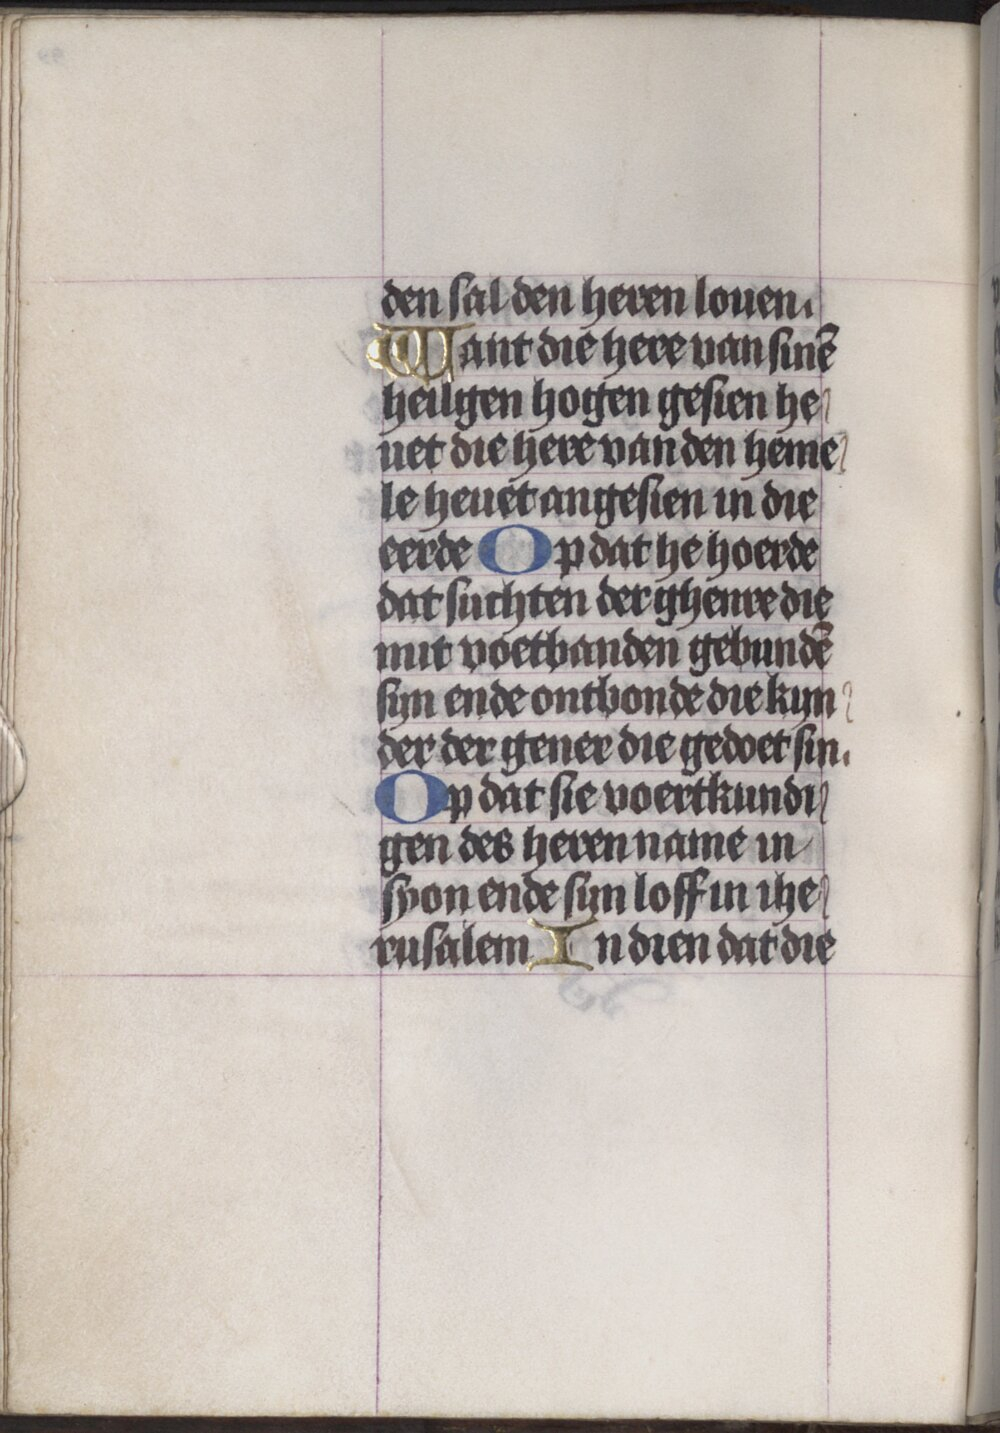 den sal den heren louen.
Want die here van sinē
heilgen hogen gesien he
uet die here van den heme
le heuet angesien in die
eerde Op dat he hoerde
dat suchten der ghenre die
mit voetbanden gebundē
syn ende ontbonde die kyn
der der gener die gedoet sin.
Op dat sie voertkundi
gen des heren name in
syon ende syn loff in ihe
rusalem In dien dat die